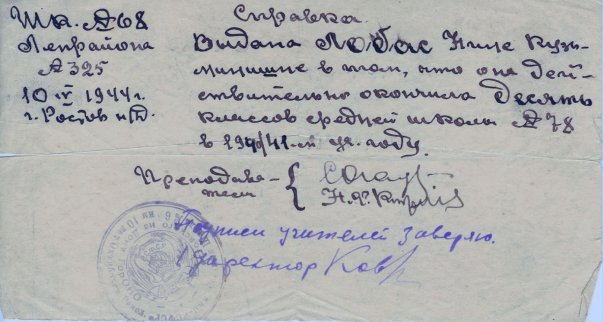 Шк. №68
Ленрайона
№325
10 IV 1944 г.
г. Ростов н/Д.
Справка.
Выдана Лобас Нине Кузь-
миничне в том, что она дей-
ствительно окончила десять
классов средней школы №78
в 1940/41-м уч. году.
Преподава-
тели
Подписи учителей заверяю.
Директор